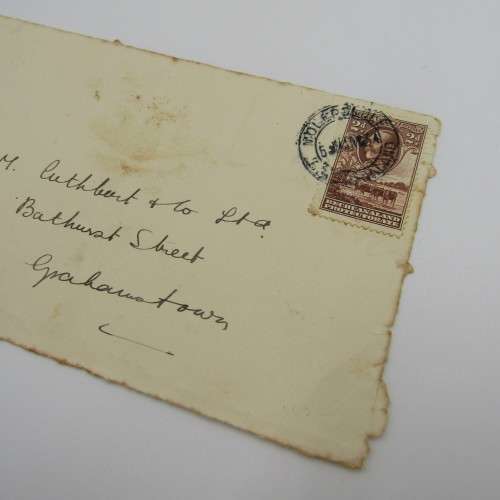 M. Cuthbert & Co Ltd
Bathurst Street
Grahamstown
MOLEPOLOLE
2d 2d
BECHUANALAND
PROTECTORATE